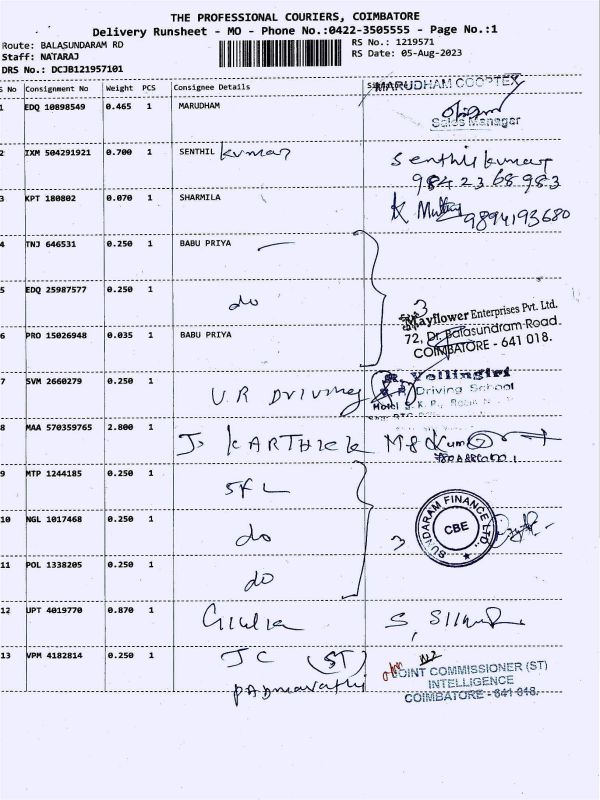 THE PROFESSIONAL COURIERS, COIMBATORE
Delivery Runsheet - MO - Phone No.:0422-3505555 - Page No.:1
Route: BALASUNDARAM RD
RS No.: 1219571
Staff: NATARAJ
RS Date: 05-Aug-2023
DRS No.: DCJB121957101
S No Consignment No Weight PCS Consignee Details
MARUDHAM COOPTEX
1 EDQ 10898549 0.465 1 MARUDHAM
Sales Manager
2 IXM 504291921 0.700 1 SENTHIL kumar Senthil kumar
98423 68983
3 KPT 180802 0.070 1 SHARMILA K 9894193680
4 TNJ 646531 0.250 1 BABU PRIYA
5 EDQ 25987577 0.250 1 do
3
Mayflower Enterprises Pvt. Ltd.
72, Dr. Balasundram Road
COIMBATORE - 641 018.
6 PRO 15026948 0.035 1 BABU PRIYA
7 SVM 2660279 0.250 1 V.R Driving
Vellingiri
Driving School
Hotel S. K. P.
8 MAA 570359765 2.800 1 J. KARTHICK
9 MTP 1244185 0.250 1 SFL
10 NGL 1017468 0.250 1 do
3
SUNDARAM FINANCE LTD.,
CBE
11 POL 1338205 0.250 1 do
12 UPT 4019770 0.870 1 Giulia S,
13 VPM 4182814 0.250 1 JC (ST)
Padmavathi
JOINT COMMISSIONER (ST)
INTELLIGENCE
COIMBATORE - 641 018.